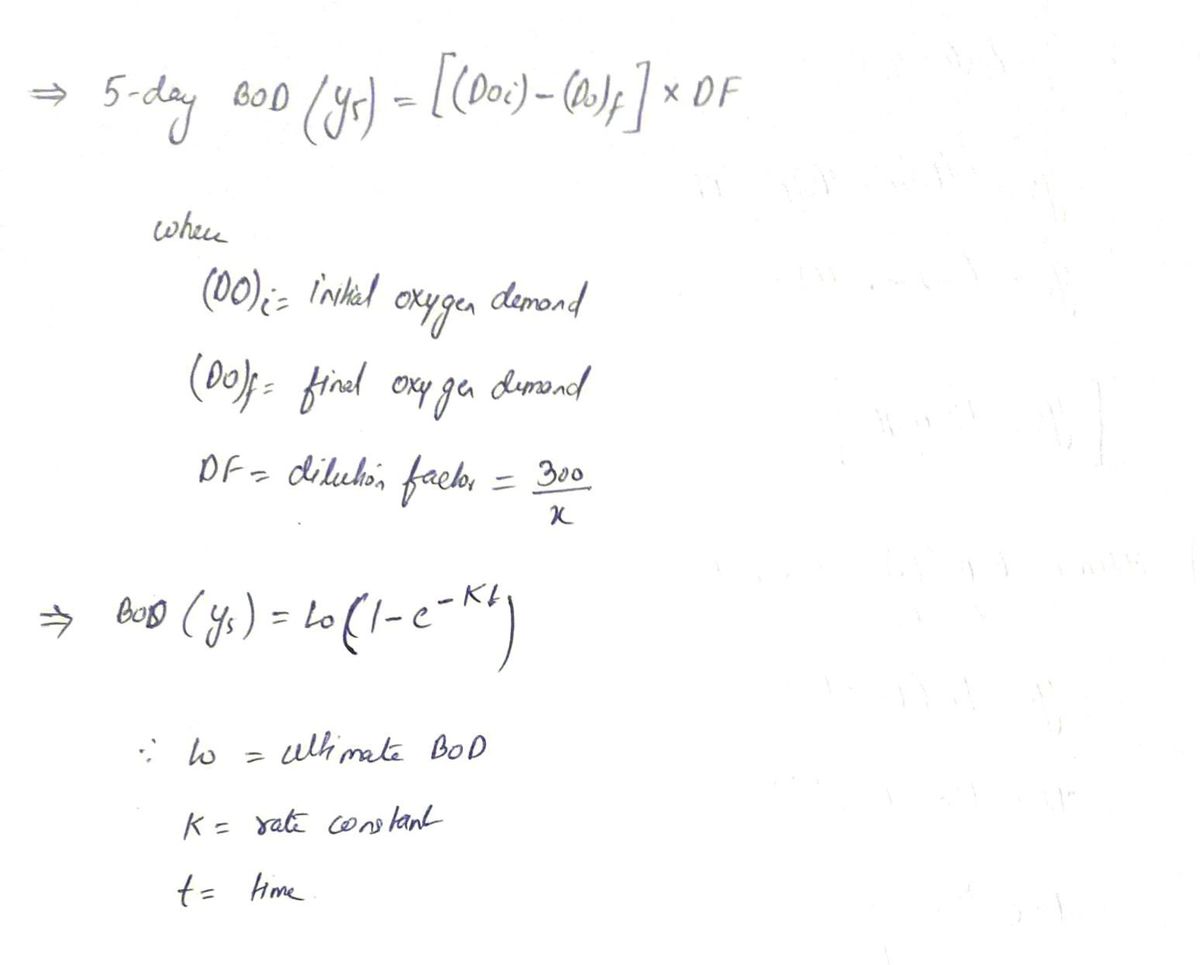 ⇒ 5-day BOD (y5) = [(DOi) - (DO)f] × DF
when
(DO)i = initial oxygen demand
(DO)f = final oxygen demand
DF = dilution factor = 300/x
⇒ BOD (y5) = Lo(1-e^-Kt)
∵ Lo = ultimate BOD
K = rate constant
t = time